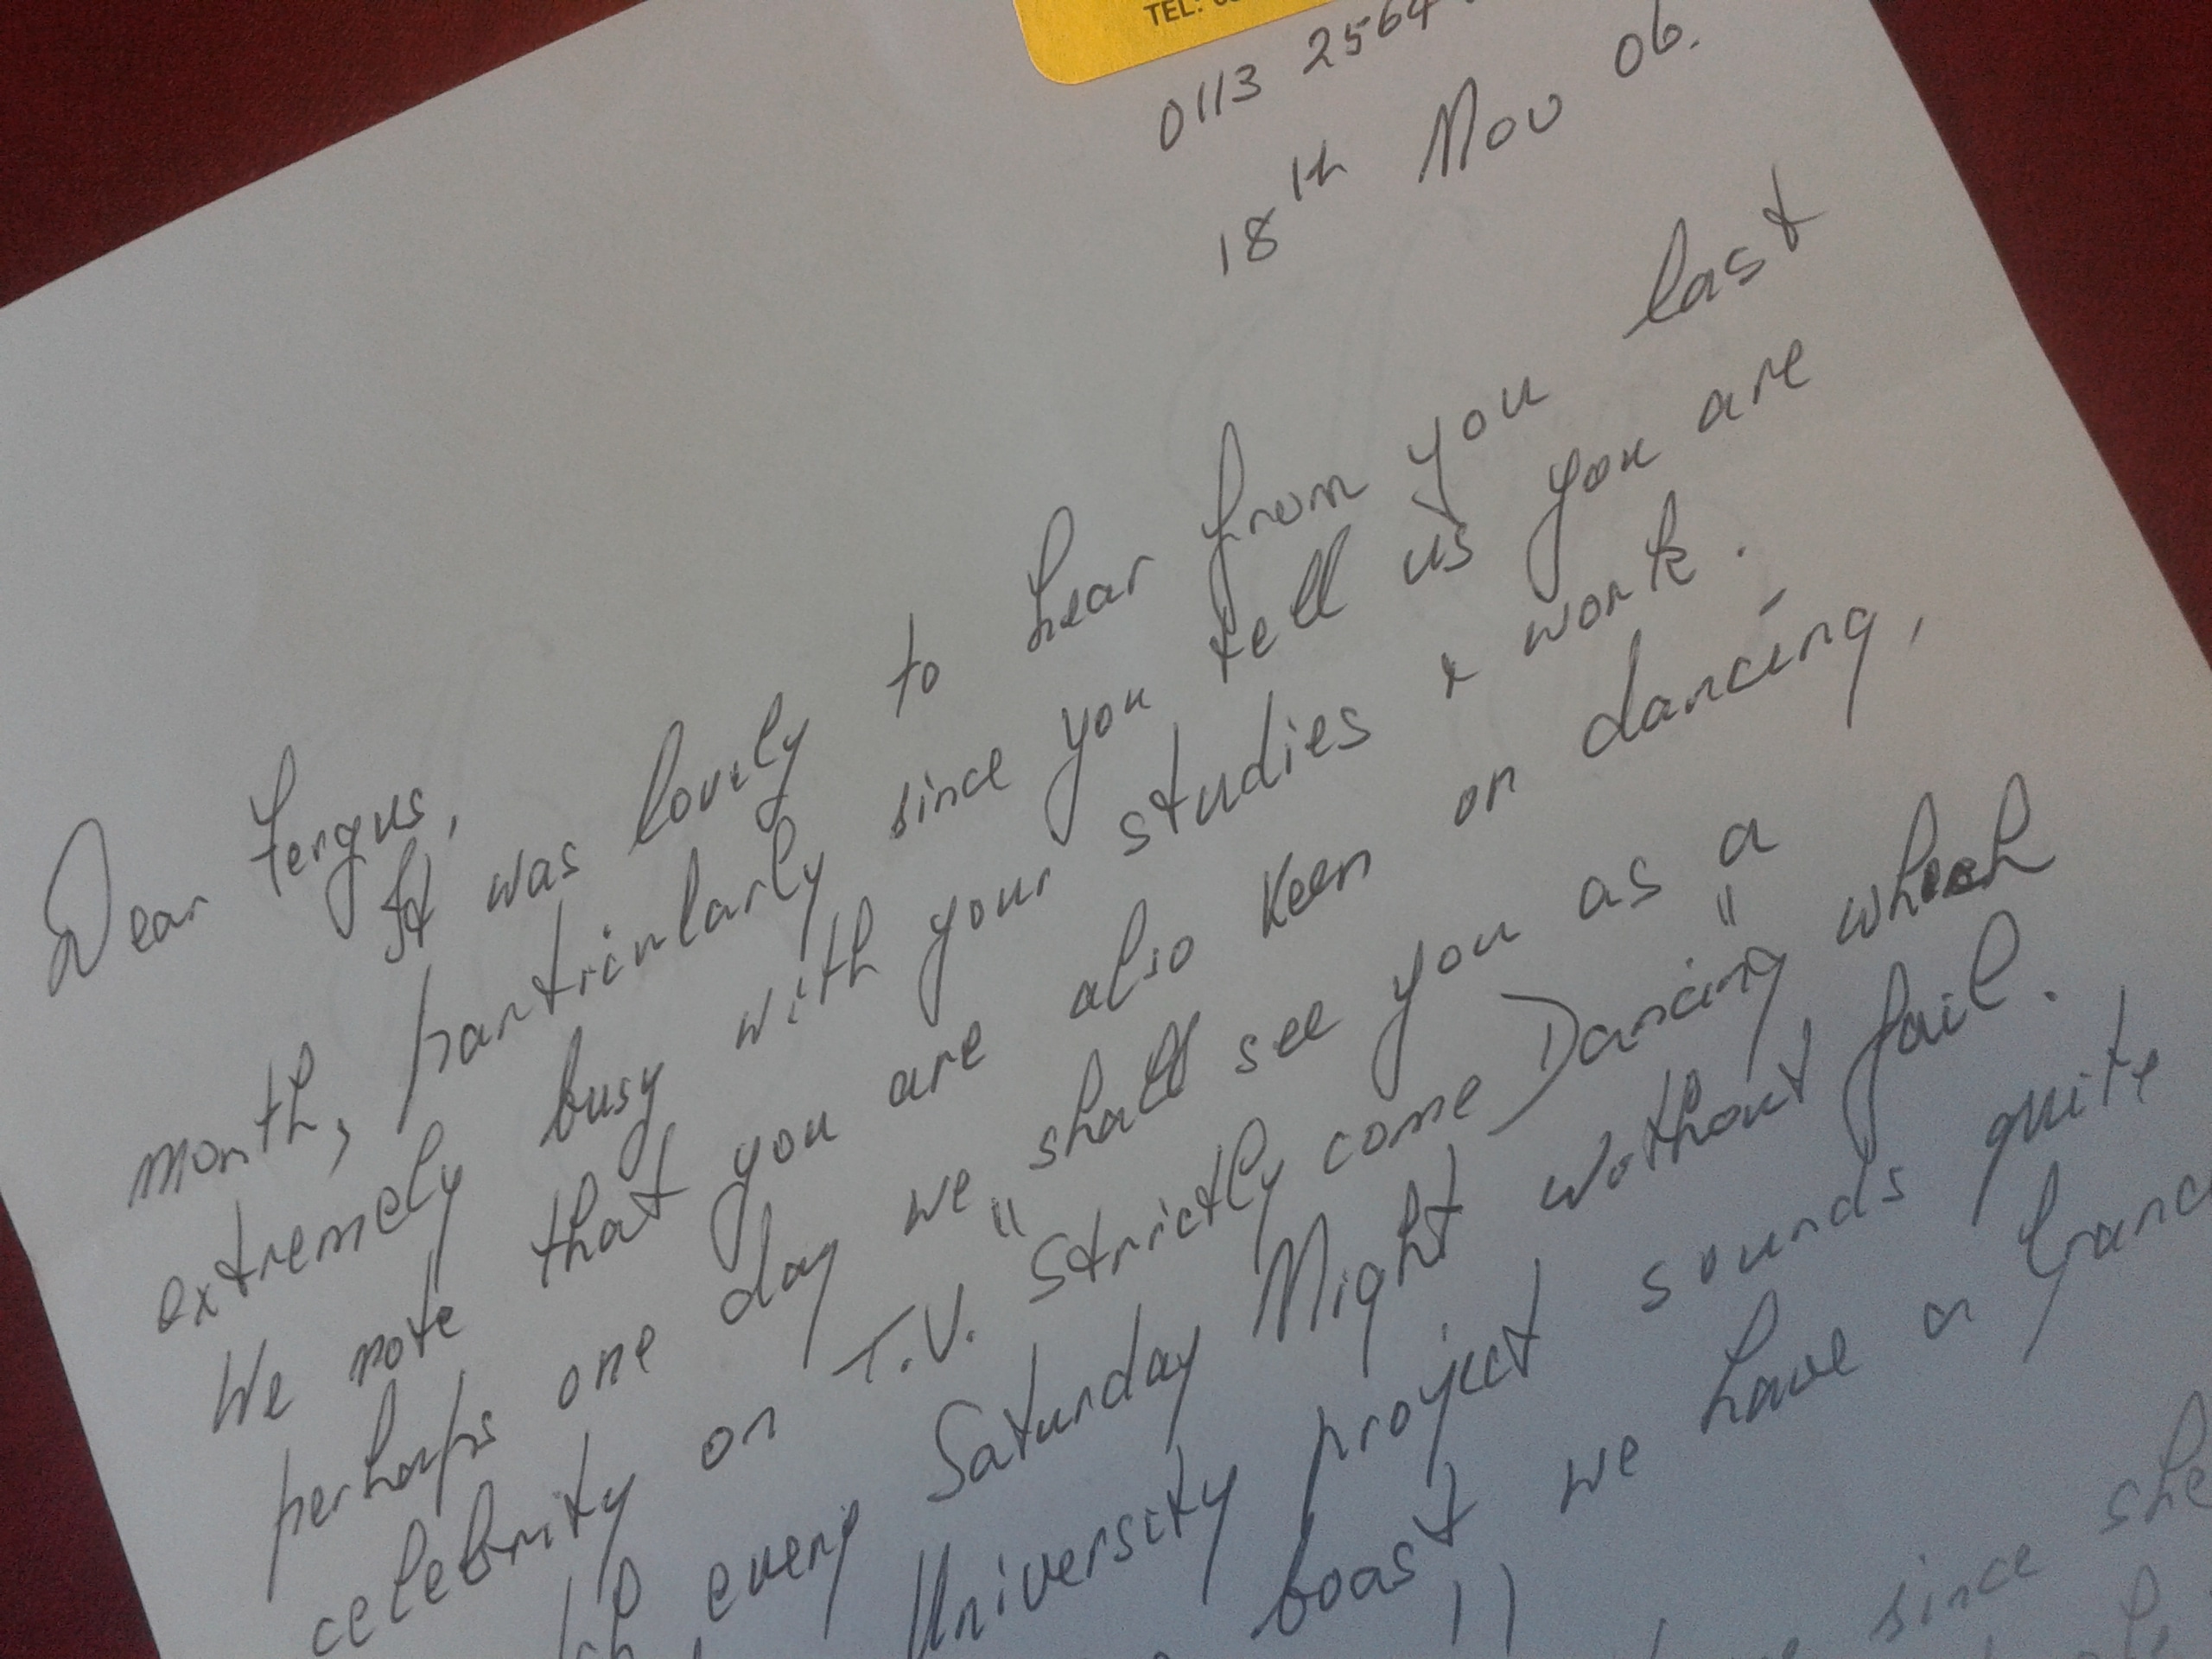 TEL:
0113 2564
18th Nov 06.
Dear Fergus,
It was lovely to hear from you last
month, particularly since you tell us you are
extremely busy with your studies & work.
We note that you are also keen on dancing,
perhaps one day we shall see you as a
celebrity on T.V. "Strictly come Dancing" which
every Saturday Night without fail.
University project sounds quite
boast we have a
since she